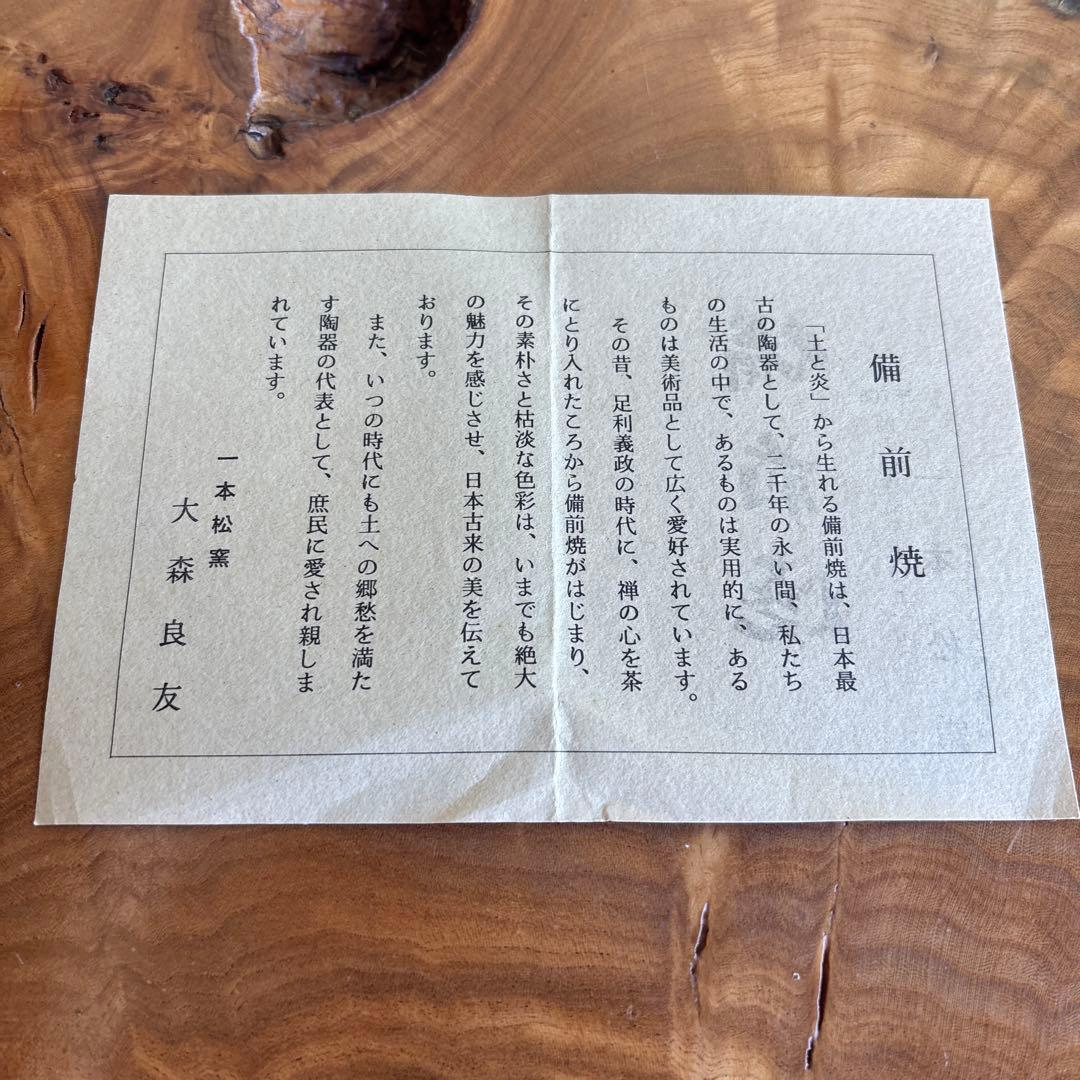 備前焼
「土と炎」から生れる備前焼は、日本最
古の陶器として、二千年の永い間、私たち
の生活の中で、あるものは実用的に、ある
ものは美術品として広く愛好されています。
その昔、足利義政の時代に、禅の心を茶
にとり入れたころから備前焼がはじまり、
その素朴さと枯淡な色彩は、いまでも絶大
の魅力を感じさせ、日本古来の美を伝えて
おります。
また、いつの時代にも土への郷愁を満た
す陶器の代表として、庶民に愛され親しま
れています。
一本松窯
大森良友